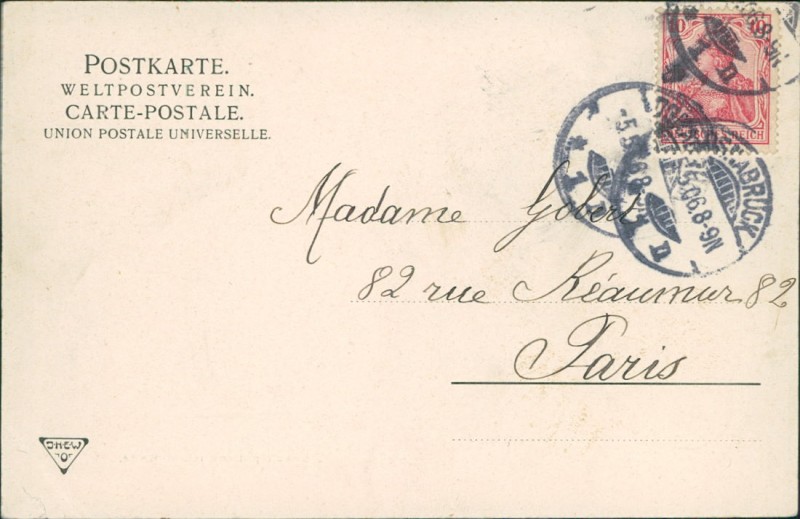 POSTKARTE.
WELTPOSTVEREIN.
CARTE-POSTALE.
UNION POSTALE UNIVERSELLE.
10 10
1 D
8-9N
5.5.
6.8
1
.5.06.8-9N
1 D
Madame Gobert
82 rue Réaumur 82
Paris